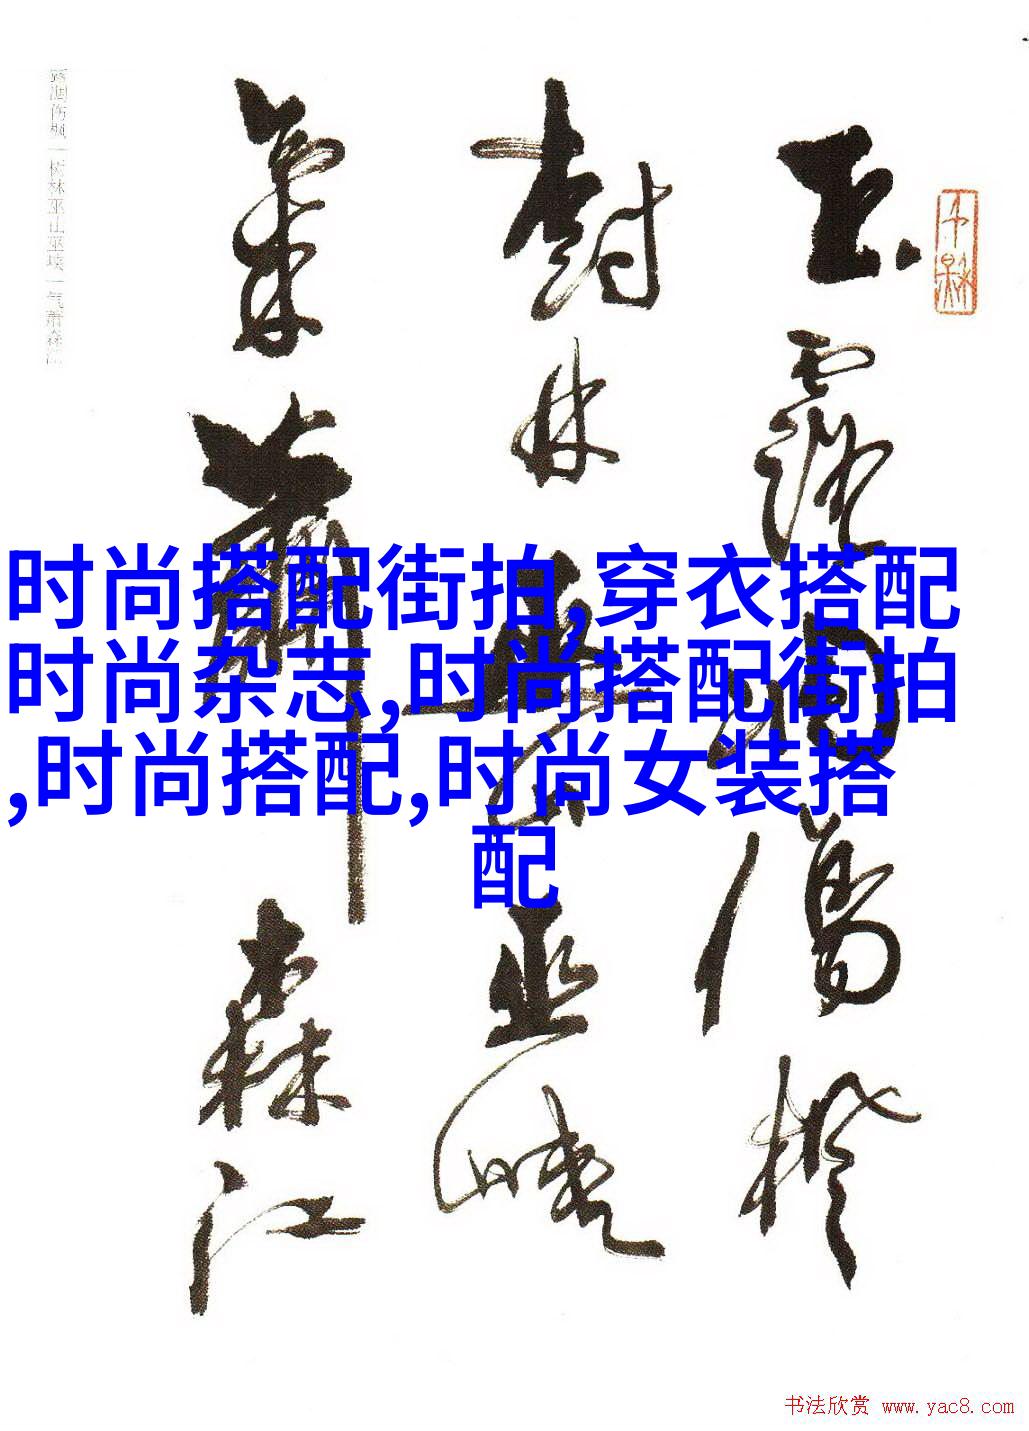 玉露凋傷楓
樹林巫山巫峽
氣蕭森江
时尚搭配街拍,穿衣搭配
时尚杂志,时尚搭配街拍
,时尚搭配,时尚女装搭
配
书法欣赏 www.yac8.com